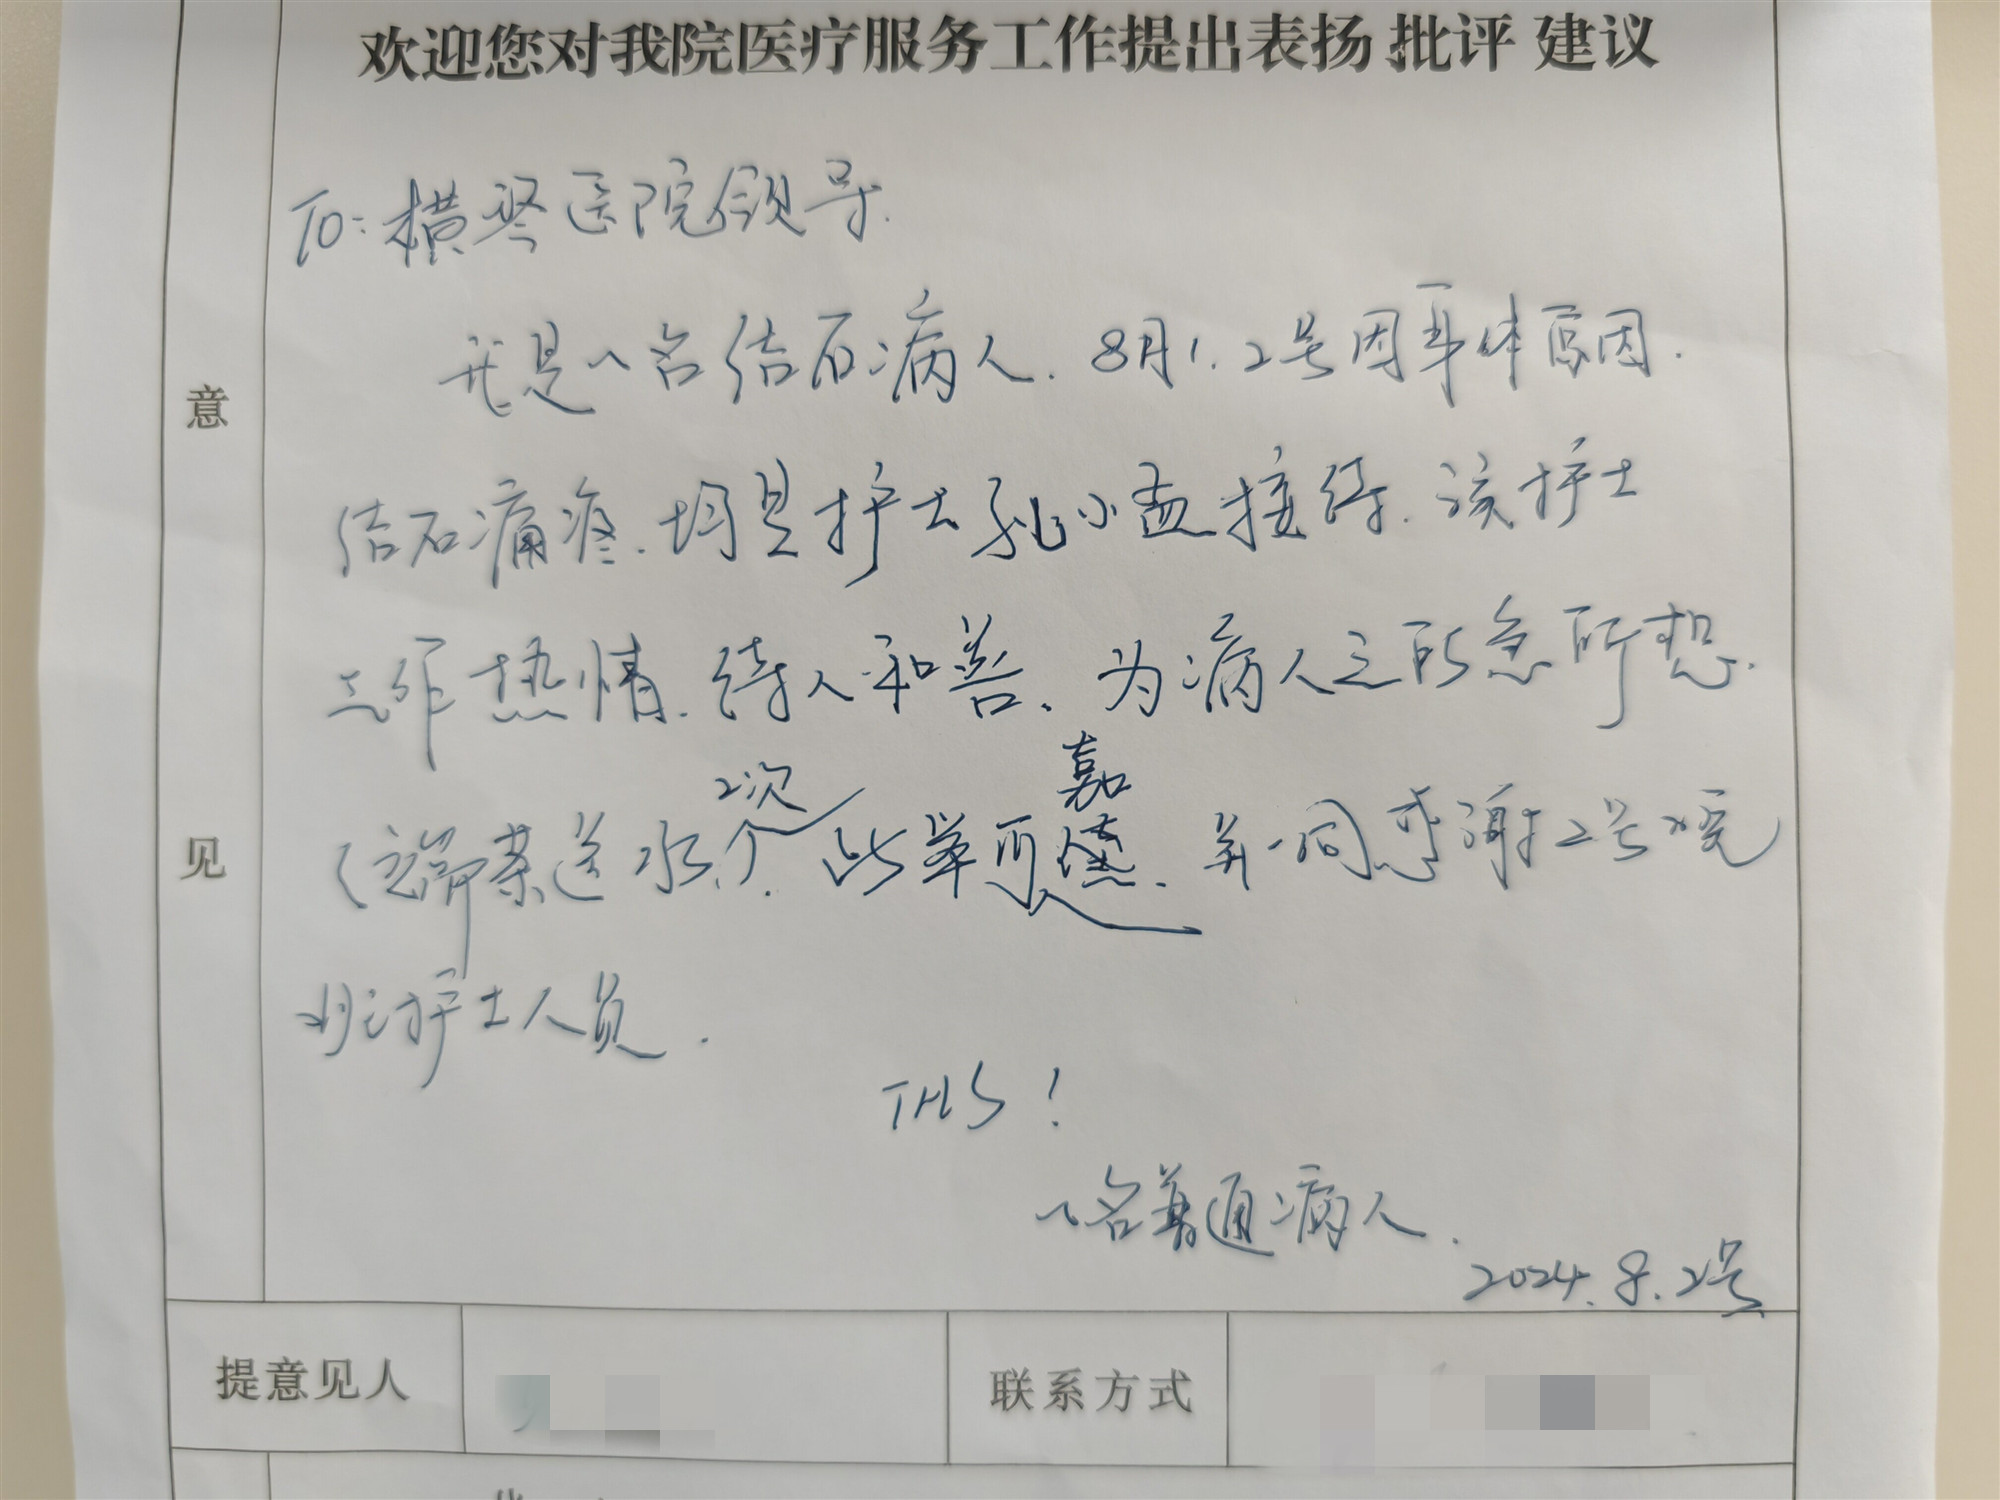 欢迎您对我院医疗服务工作提出表扬 批评 建议
TO：横琴医院领导.
我是一名结石病人. 8月1.2号因身体原因.
意
结石痛疼. 均是护士孔小孟接待. 该护士
工作热情. 待人和善. 为病人之所急所想.
2次
嘉
茶送水. 此举可 . 并一同感谢2号晚
见
班护士人员.
THS！
一名普通病人.
2024.8.2号
提意见人
联系方式